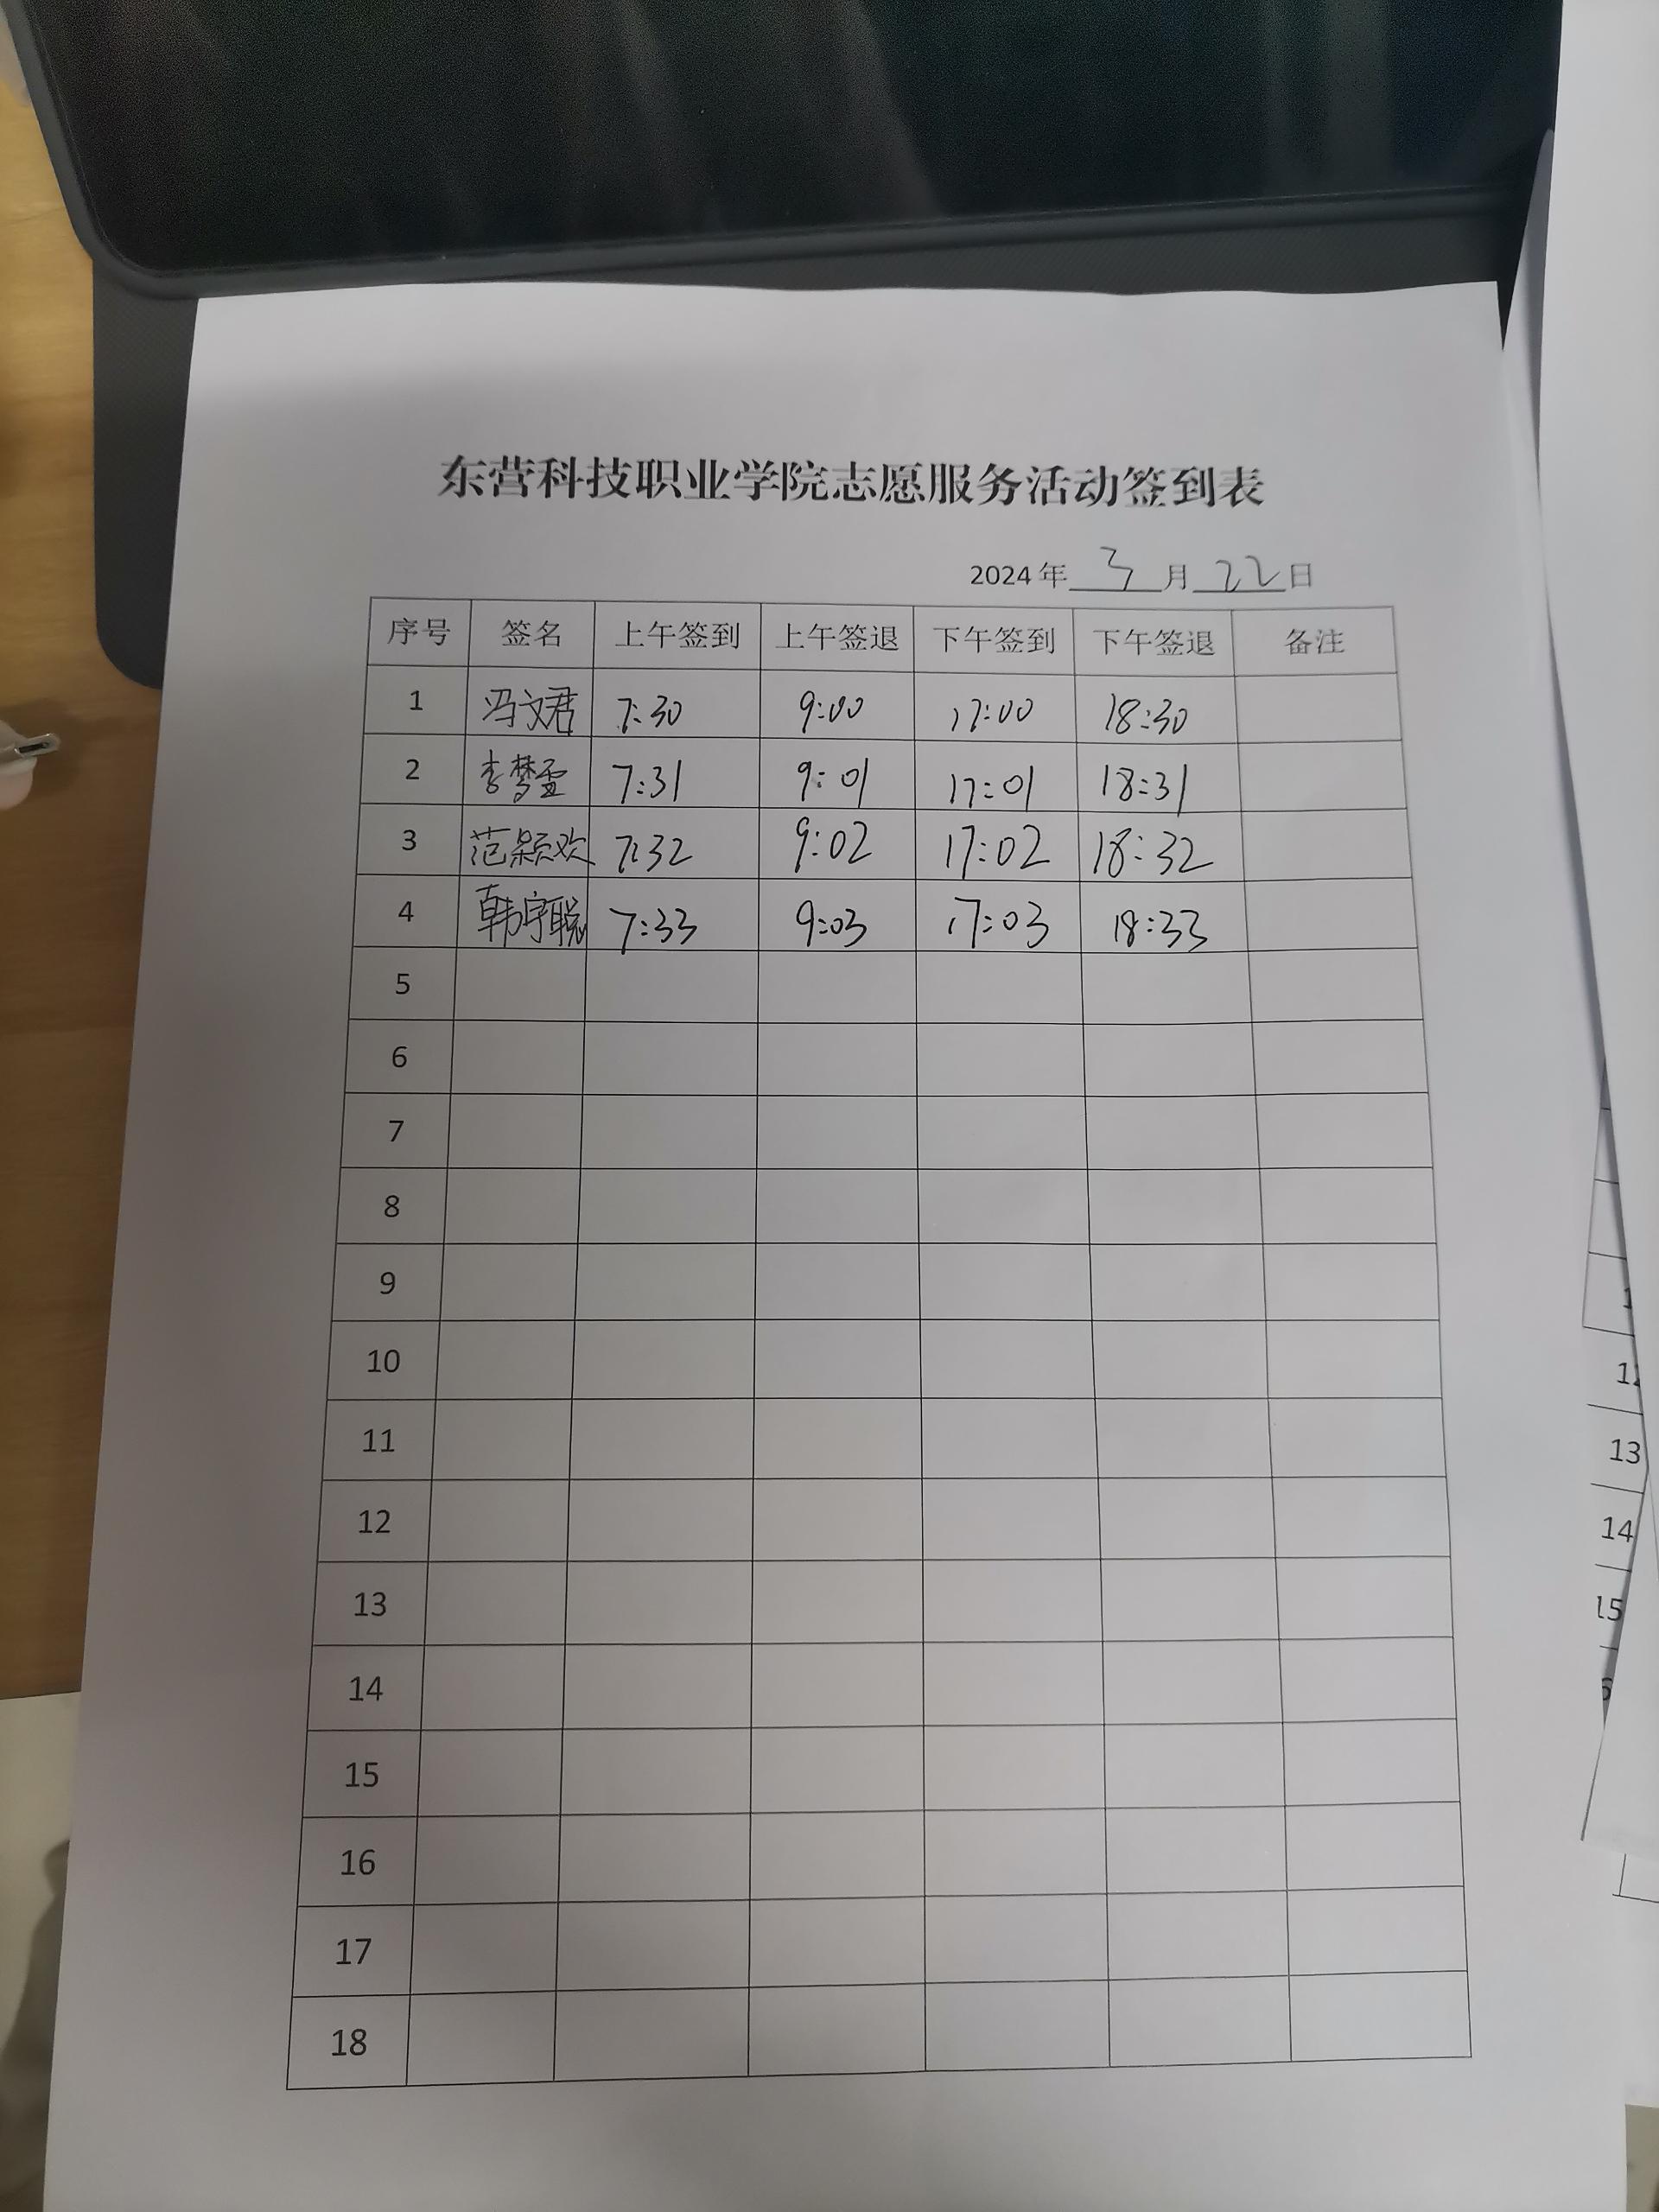 东营科技职业学院志愿服务活动签到表
2024年 3 月 22 日
序号 签名 上午签到 上午签退 下午签到 下午签退 备注
1 冯文君 7:30 9:00 17:00 18:30
2 李梦雪 7:31 9:01 17:01 18:31
3 范颢欢 7:32 9:02 17:02 18:32
4 韩宇聪 7:33 9:03 17:03 18:33
5
6
7
8
9
10
11
12
13
14
15
16
17
18
13
14
15